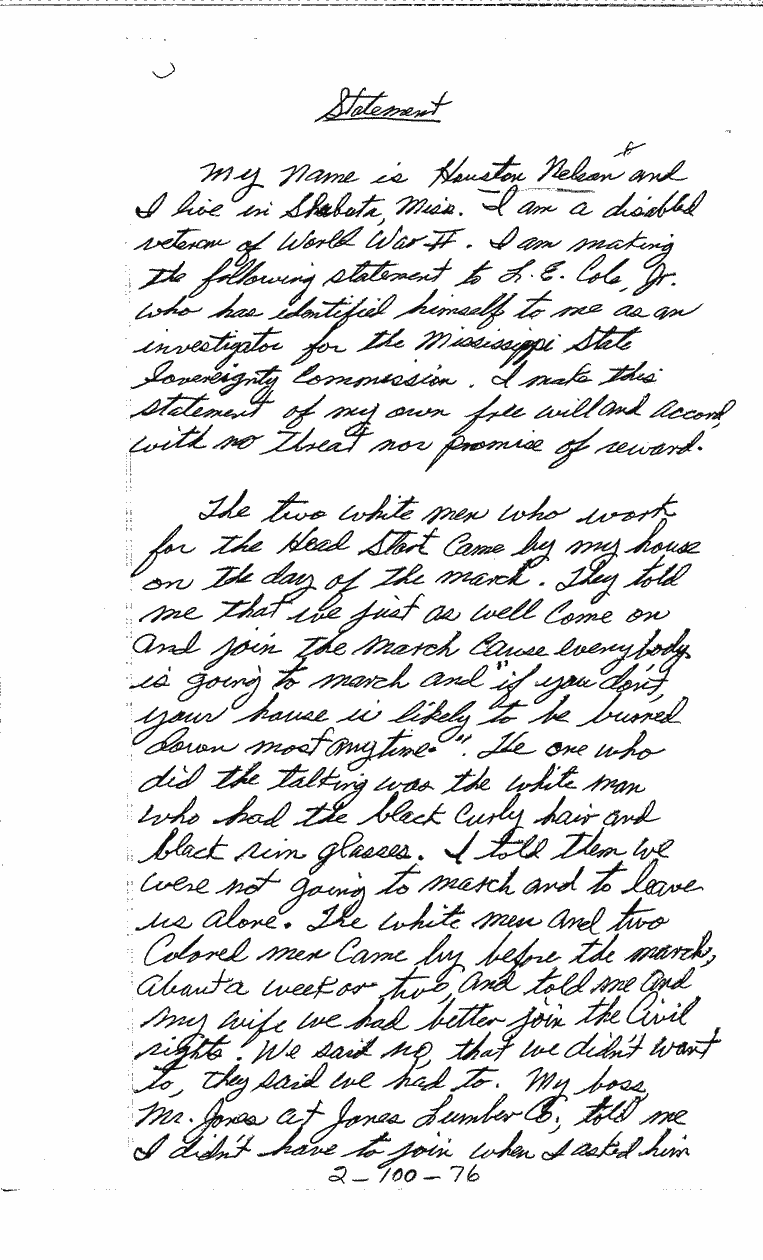 Statement
My name is Houston Nelson and
I live in Shubuta, Miss. I am a disabled
veteran of World War II. I am making
the following statement to L. E. Cole, Jr.
who has identified himself to me as an
investigator for the Mississippi State
Sovereignty Commission. I make this
statement of my own free will and accord,
with no threat nor promise of reward.
The two white men who work
for the Head Start came by my house
on the day of the march. They told
me that we just as well come on
and join the march cause everybody
is going to march and "if you don't,
your house is likely to be burned
down most anytime." The one who
did the talking was the white man
who had the black curly hair and
black rim glasses. I told them we
were not going to march and to leave
us alone. The white men and two
Colored men came by before the march,
about a week or two, and told me and
my wife we had better join the Civil
rights. We said no, that we didn't want
to, they said we had to. My boss,
Mr. Jones at Jones Lumber Co., told me
I didn't have to join when I asked him
2-100-76